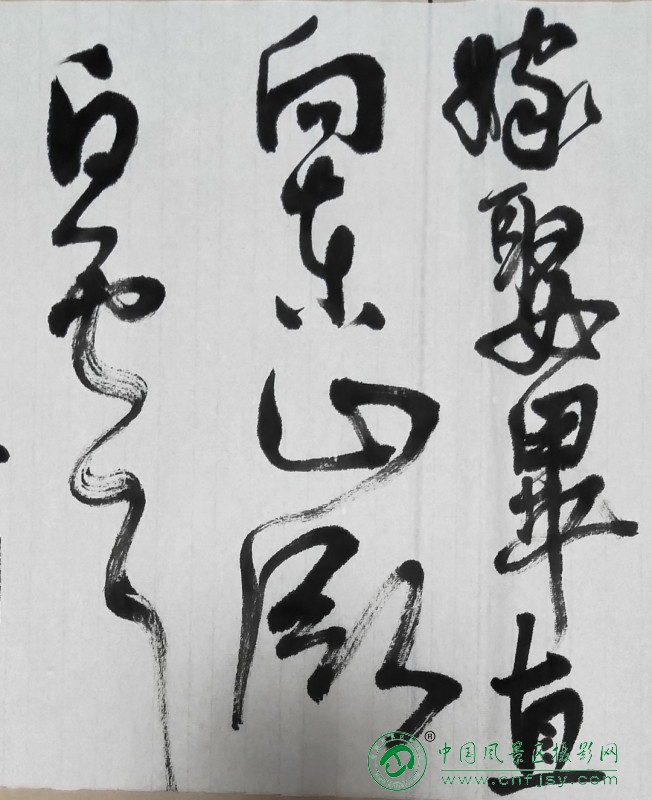 嫁娶畢直
向東山卧
白雲
®
中国风景区摄影网
www.cnfjsy.com